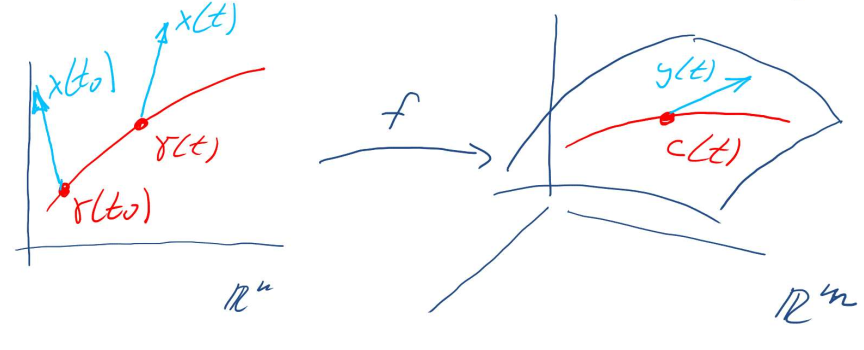 x(t)
x(t₀)
γ(t)
γ(t₀)
ℝⁿ
f
y(t)
c(t)
ℝᵐ